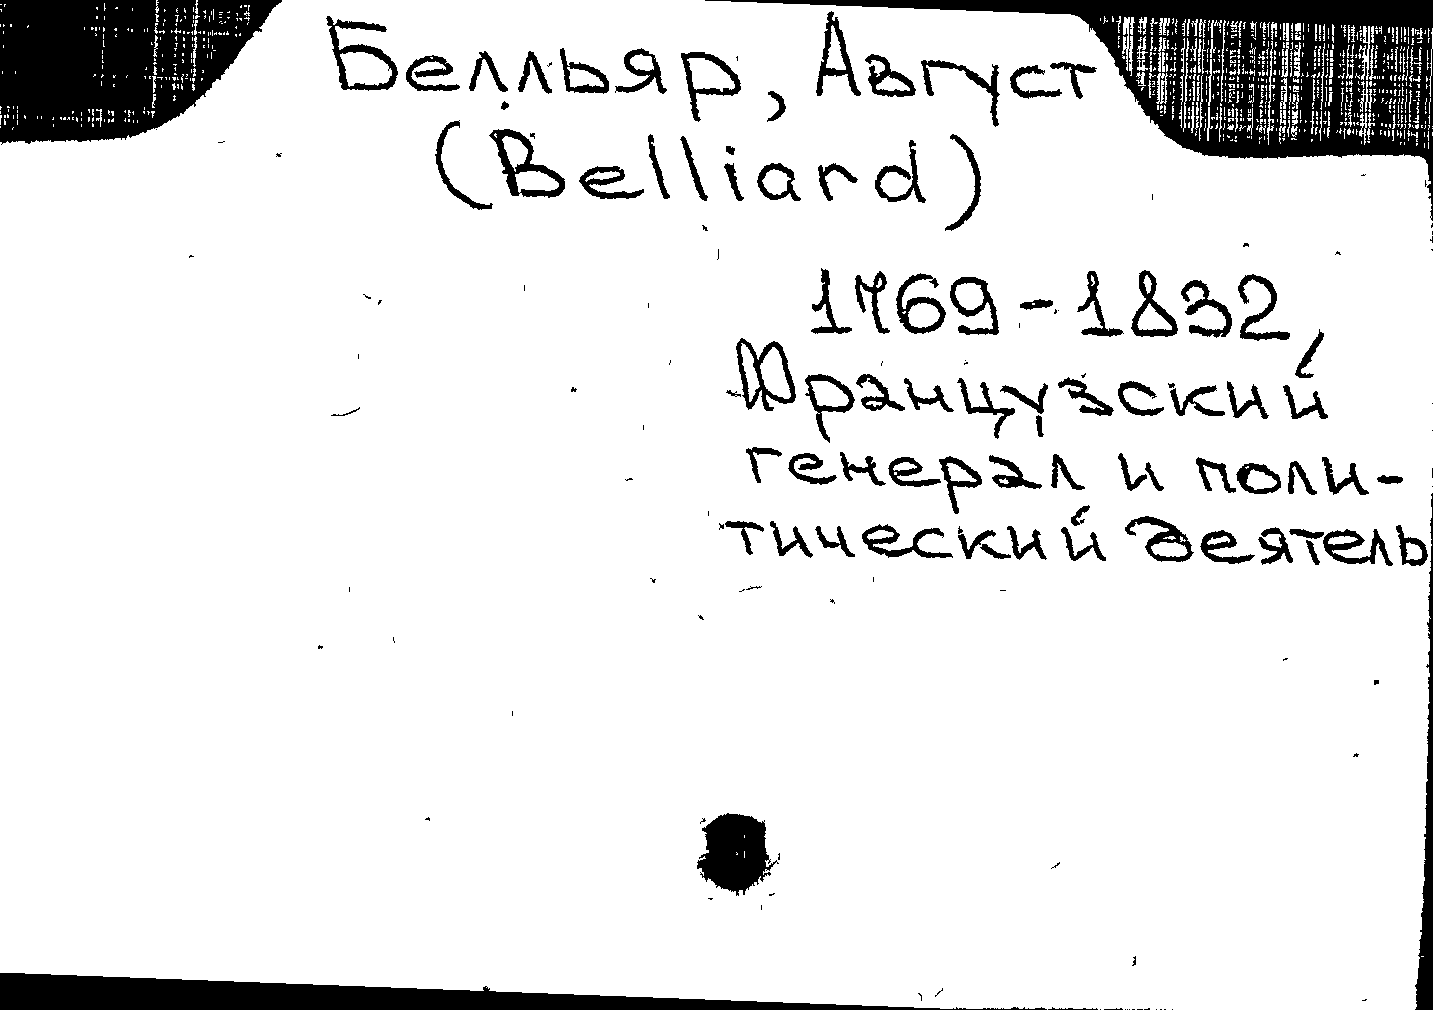 Белльяр, Август
(Belliard)
1769-1832,
Французский
генерал и поли-
тический деятель